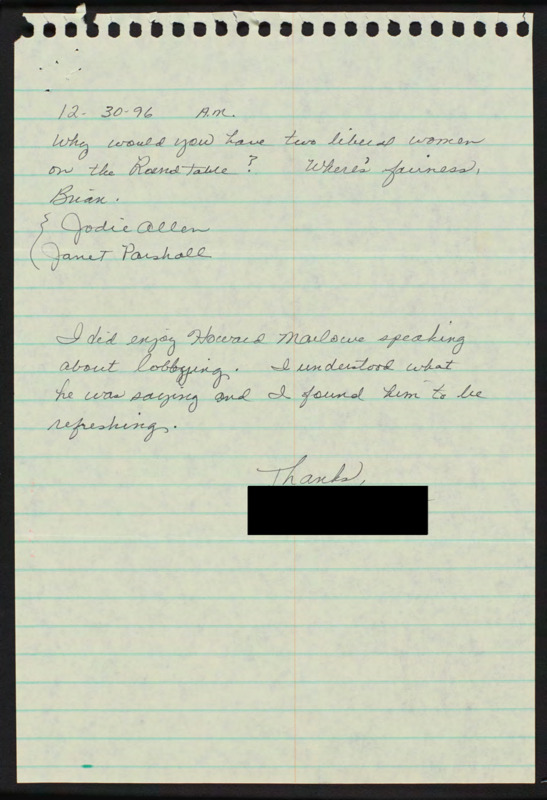 12-30-96 A.M.
Why would you have two liberal women
on the Roundtable? Where's fairness,
Brian.
{ Jodie Allen
Janet Parshall
I did enjoy Howard Marlowe speaking
about lobbying. I understood what
he was saying and I found him to be
refreshing.
Thanks,